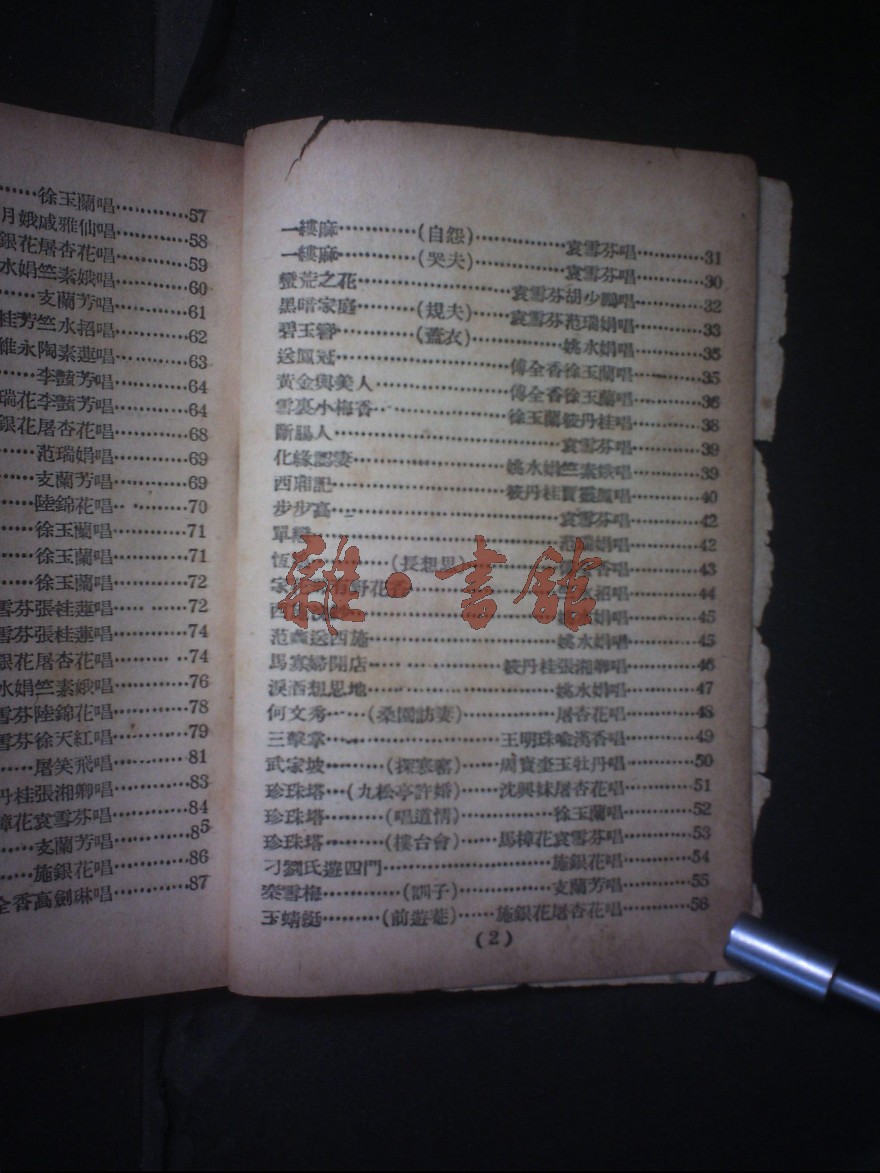 一縷麻…………(自怨)…………袁雪芬唱…………31
一縷麻…………(哭夫)…………袁雪芬唱…………30
蠻荒之花…………袁雪芬胡少鵬唱…………32
黑暗家庭…………(規夫)…………袁雪芬范瑞娟唱…………33
碧玉簪…………(蓋衣)…………姚水娟唱…………35
送鳳冠…………傅全香徐玉蘭唱…………35
黃金與美人…………傅全香徐玉蘭唱…………36
雪裏小梅香…………徐玉蘭筱丹桂唱…………38
斷腸人…………袁雪芬唱…………39
化緣認妻…………姚水娟竺素娥唱…………39
西廂記…………筱丹桂賈靈鳳唱…………40
步步高…………袁雪芬唱…………42
單…………范瑞娟唱…………42
恆…………(長想思)…………香唱…………43
家 有野花香…………水招唱…………44
西…………娟唱…………45
范蠡送西施…………姚水娟唱…………45
馬寡婦開店…………筱丹桂張湘卿唱…………46
淚洒想思地…………姚水娟唱…………47
何文秀……(桑園訪妻)…………屠杏花唱…………48
三擊掌…………王明珠喻漢香唱…………49
武家坡…………(探寒窰)……周寶奎玉牡丹唱…………50
珍珠塔……(九松亭許婚)……沈興妹屠杏花唱…………51
珍珠塔…………(唱道情)…………徐玉蘭唱…………52
珍珠塔…………(樓台會)……馬樟花袁雪芬唱…………53
刁劉氏遊四門…………施銀花唱…………54
秦雪梅…………(訓子)…………支蘭芳唱…………55
玉蜻蜓…………(前遊菴)……施銀花屠杏花唱…………56
(2)
……徐玉蘭唱…………57
月娥戚雅仙唱…………58
銀花屠杏花唱…………59
水娟竺素娥唱…………60
……支蘭芳唱…………61
桂芳竺水招唱…………62
維永陶素蓮唱…………63
……李豔芳唱…………64
瑞花李豔芳唱…………64
銀花屠杏花唱…………68
……范瑞娟唱…………69
……支蘭芳唱…………69
……陸錦花唱…………70
……徐玉蘭唱…………71
……徐玉蘭唱…………71
……徐玉蘭唱…………72
雪芬張桂蓮唱…………72
雪芬張桂蓮唱…………74
銀花屠杏花唱…………74
水娟竺素娥唱…………76
雪芬陸錦花唱…………78
雪芬徐天紅唱…………79
……屠笑飛唱…………81
丹桂張湘卿唱…………83
樟花袁雪芬唱…………84
……支蘭芳唱…………85
……施銀花唱…………86
全香高劍琳唱…………87
雜·書館